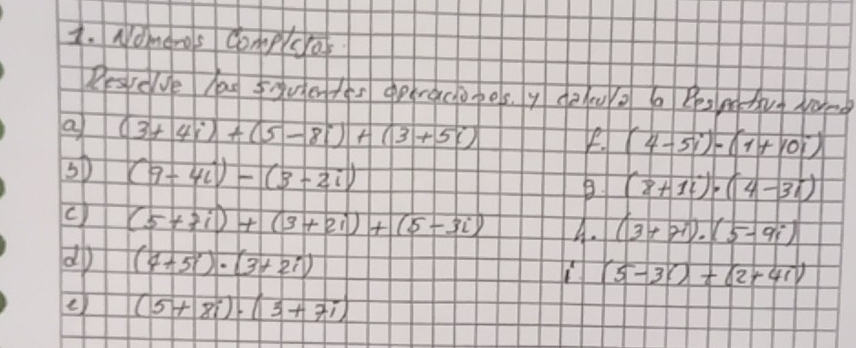 1. Números Complejos.
Resuelve las siguientes operaciones. y calcula la Respectiva Norma
a) (3+4i)+(5-8i)+(3+5i)
b) (9-4i)-(3-2i)
c) (5+7i)+(3+2i)+(5-3i)
d) (4+5i)·(3+2i)
e) (5+8i)·(3+7i)
f. (4-5i)-(1+10i)
g. (8+1i)·(4-3i)
h. (3+7i)·(5-9i)
i (5-3i)+(2+4i)